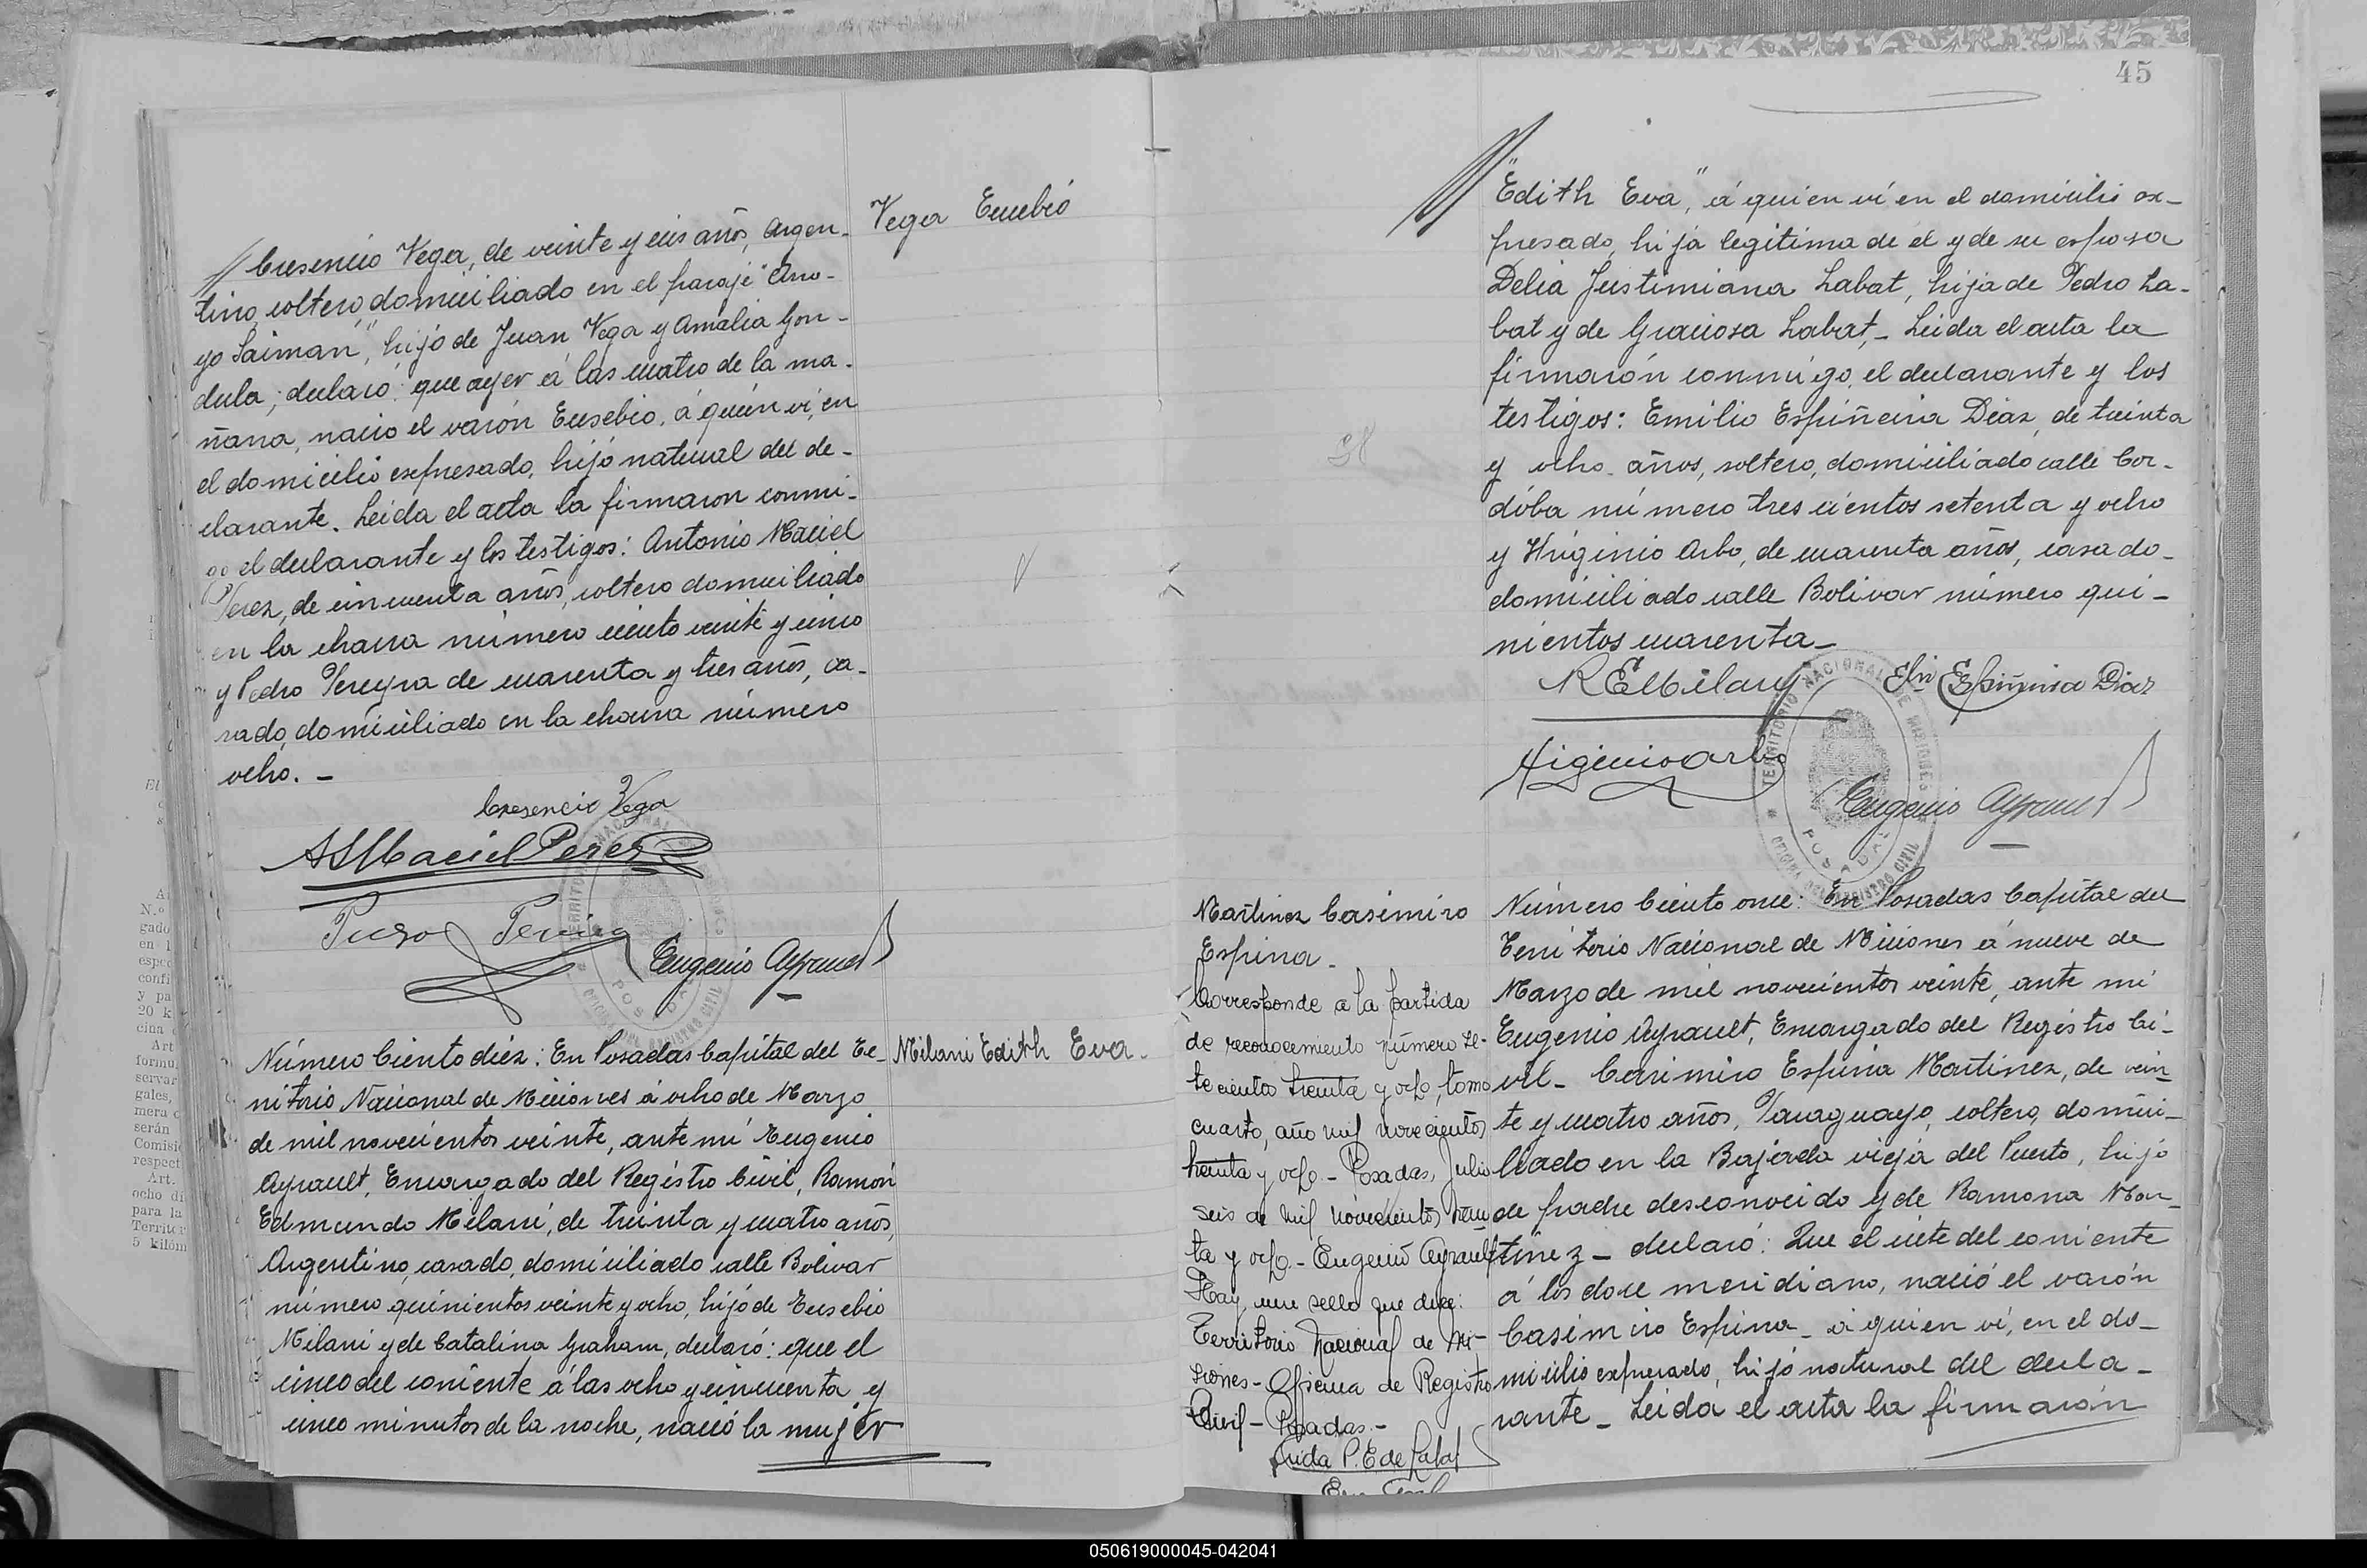 Vega Eusebio
Cresencio Vega, de veinte y seis años, Argen-
tino, soltero, domiciliado en el paraje "Arro-
yo Saiman", hijo de Juan Vega y Amalia Gon-
dula; declaró: que ayer á las cuatro de la ma-
ñana, nació el varón Eusebio, á quién ví, en
el domicilio expresado, hijo natural del de-
clarante. Leida el acta la firmaron conmi-
go el declarante y los testigos: Antonio Maciel
Perez, de cincuenta años, soltero domiciliado
en la chacra número ciento veinte y cinco
y Pedro Pereyra de cuarenta y tres años, ca-
sado, domiciliado en la chacra número
ocho. -
Cresencio Vega
A S Maciel Perez
Eugenio Ayrault
TERRITORIO NACIONAL DE MISIONES
POSADAS
OFICINA DEL REGISTRO CIVIL
Milani Edith Eva.
Número Ciento diéz: En Posadas Capital del Te-
rritorio Nacional de Misiones á ocho de Marzo
de mil novecientos veinte, ante mí Eugenio
Ayrault, Encargado del Registro Civil, Ramón
Edmundo Milani, de treinta y cuatro años,
Argentino, casado, domiciliado calle Bolivar
número quinientos veinte y ocho, hijo de Eusebio
Milani y de Catalina Graham, declaró: que el
cinco del corriente á las ocho y cincuenta y
cinco minutos de la noche, nació la mujer
45
"Edith Eva," á quien ví en el domicilio ex-
presado, hija legitima de él y de su esposa
Delia Justimiana Labat, hija de Pedro La-
bat y de Graciosa Labat,- Leida el acta la
firmarón conmigo, el declarante y los
testigos: Emilio Espiñeira Diaz, de treinta
y ocho años, soltero, domiciliado calle Cor-
dóba número tres cientos setenta y ocho
y Higinio Arbo, de cuarenta años, casado-
domiciliado calle Bolivar número qui-
nientos cuarenta-
R E Milani
Espiñeira Diaz
Higinio Arbo
Eugenio Ayrault
TERRITORIO NACIONAL DE MISIONES
POSADAS
OFICINA DEL REGISTRO CIVIL
Martinez Casimiro
Espina-
Corresponde a la partida
de reconocimiento número se-
tecientos treinta y ocho, tomo
cuarto, año mil novecientos
treinta y ocho - Posadas, Julio
seis de mil novecientos trein-
ta y ocho - Eugenio Ayrault
Hay un sello que dice:
Territorio Nacional de Mi-
siones - Oficina de Registro
Civil - Posadas.-
Número Ciento once: En Posadas Capital del
Territorio Nacional de Misiones á nueve de
Marzo de mil novecientos veinte, ante mi
Eugenio Ayrault, Encargado del Registro Ci-
vil- Casimiro Espina Martinez, de vein
te y cuatro años, Paraguayo, soltero, domici-
liado en la Bajada vieja del Puerto, hijo
de padre desconocido y de Ramona Mar-
tinez - declaró: Que el siete del corriente
á las doce meridiano, nació el varón
Casimiro Espina - á quien ví, en el do-
micilio expresado, hijo natural del decla-
rante - Leida el acta la firmarón
050619000045-042041